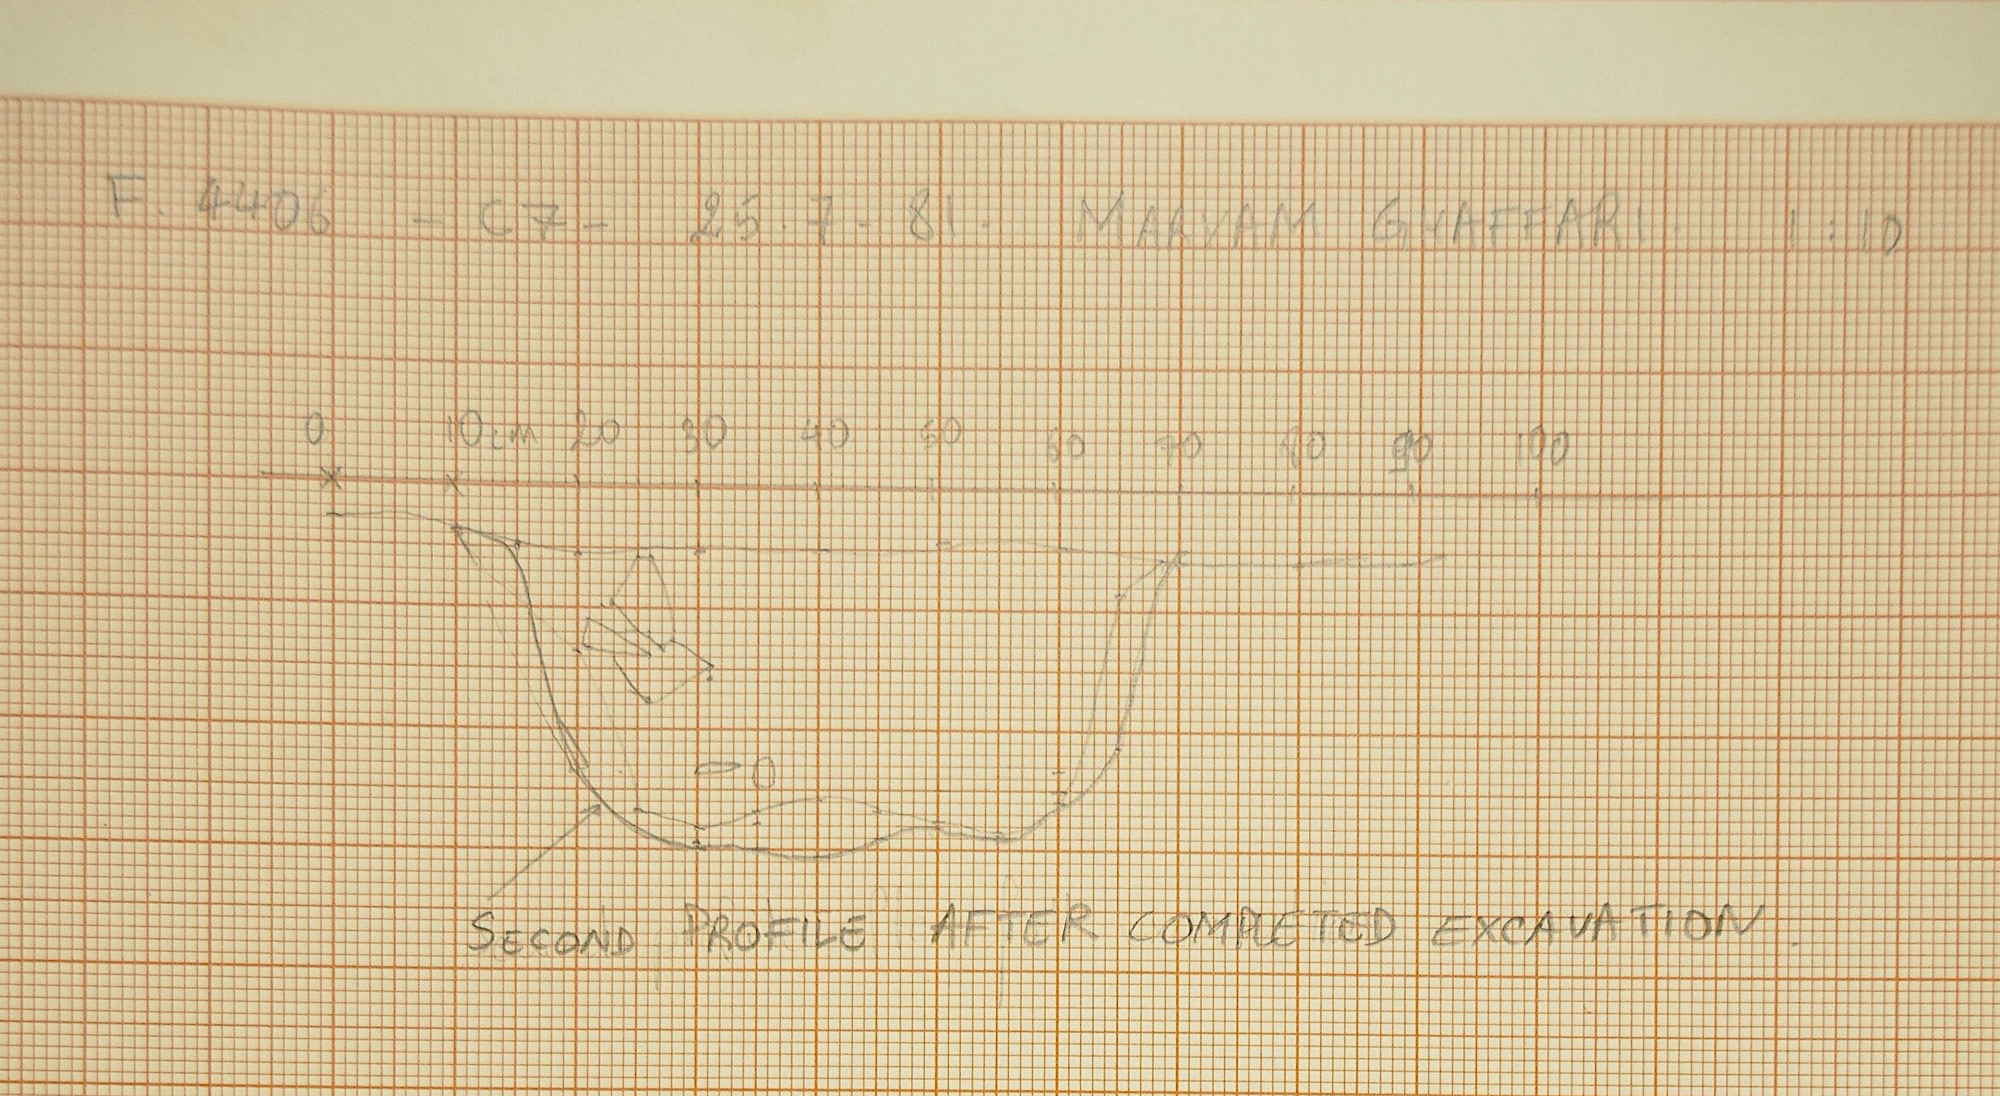 F. 4406 - C7 - 25.7-81. MARYAM GHAFFARI. 1:10
0 10cm 20 30 40 50 60 70 80 90 100
SECOND PROFILE AFTER COMPLETED EXCAVATION.